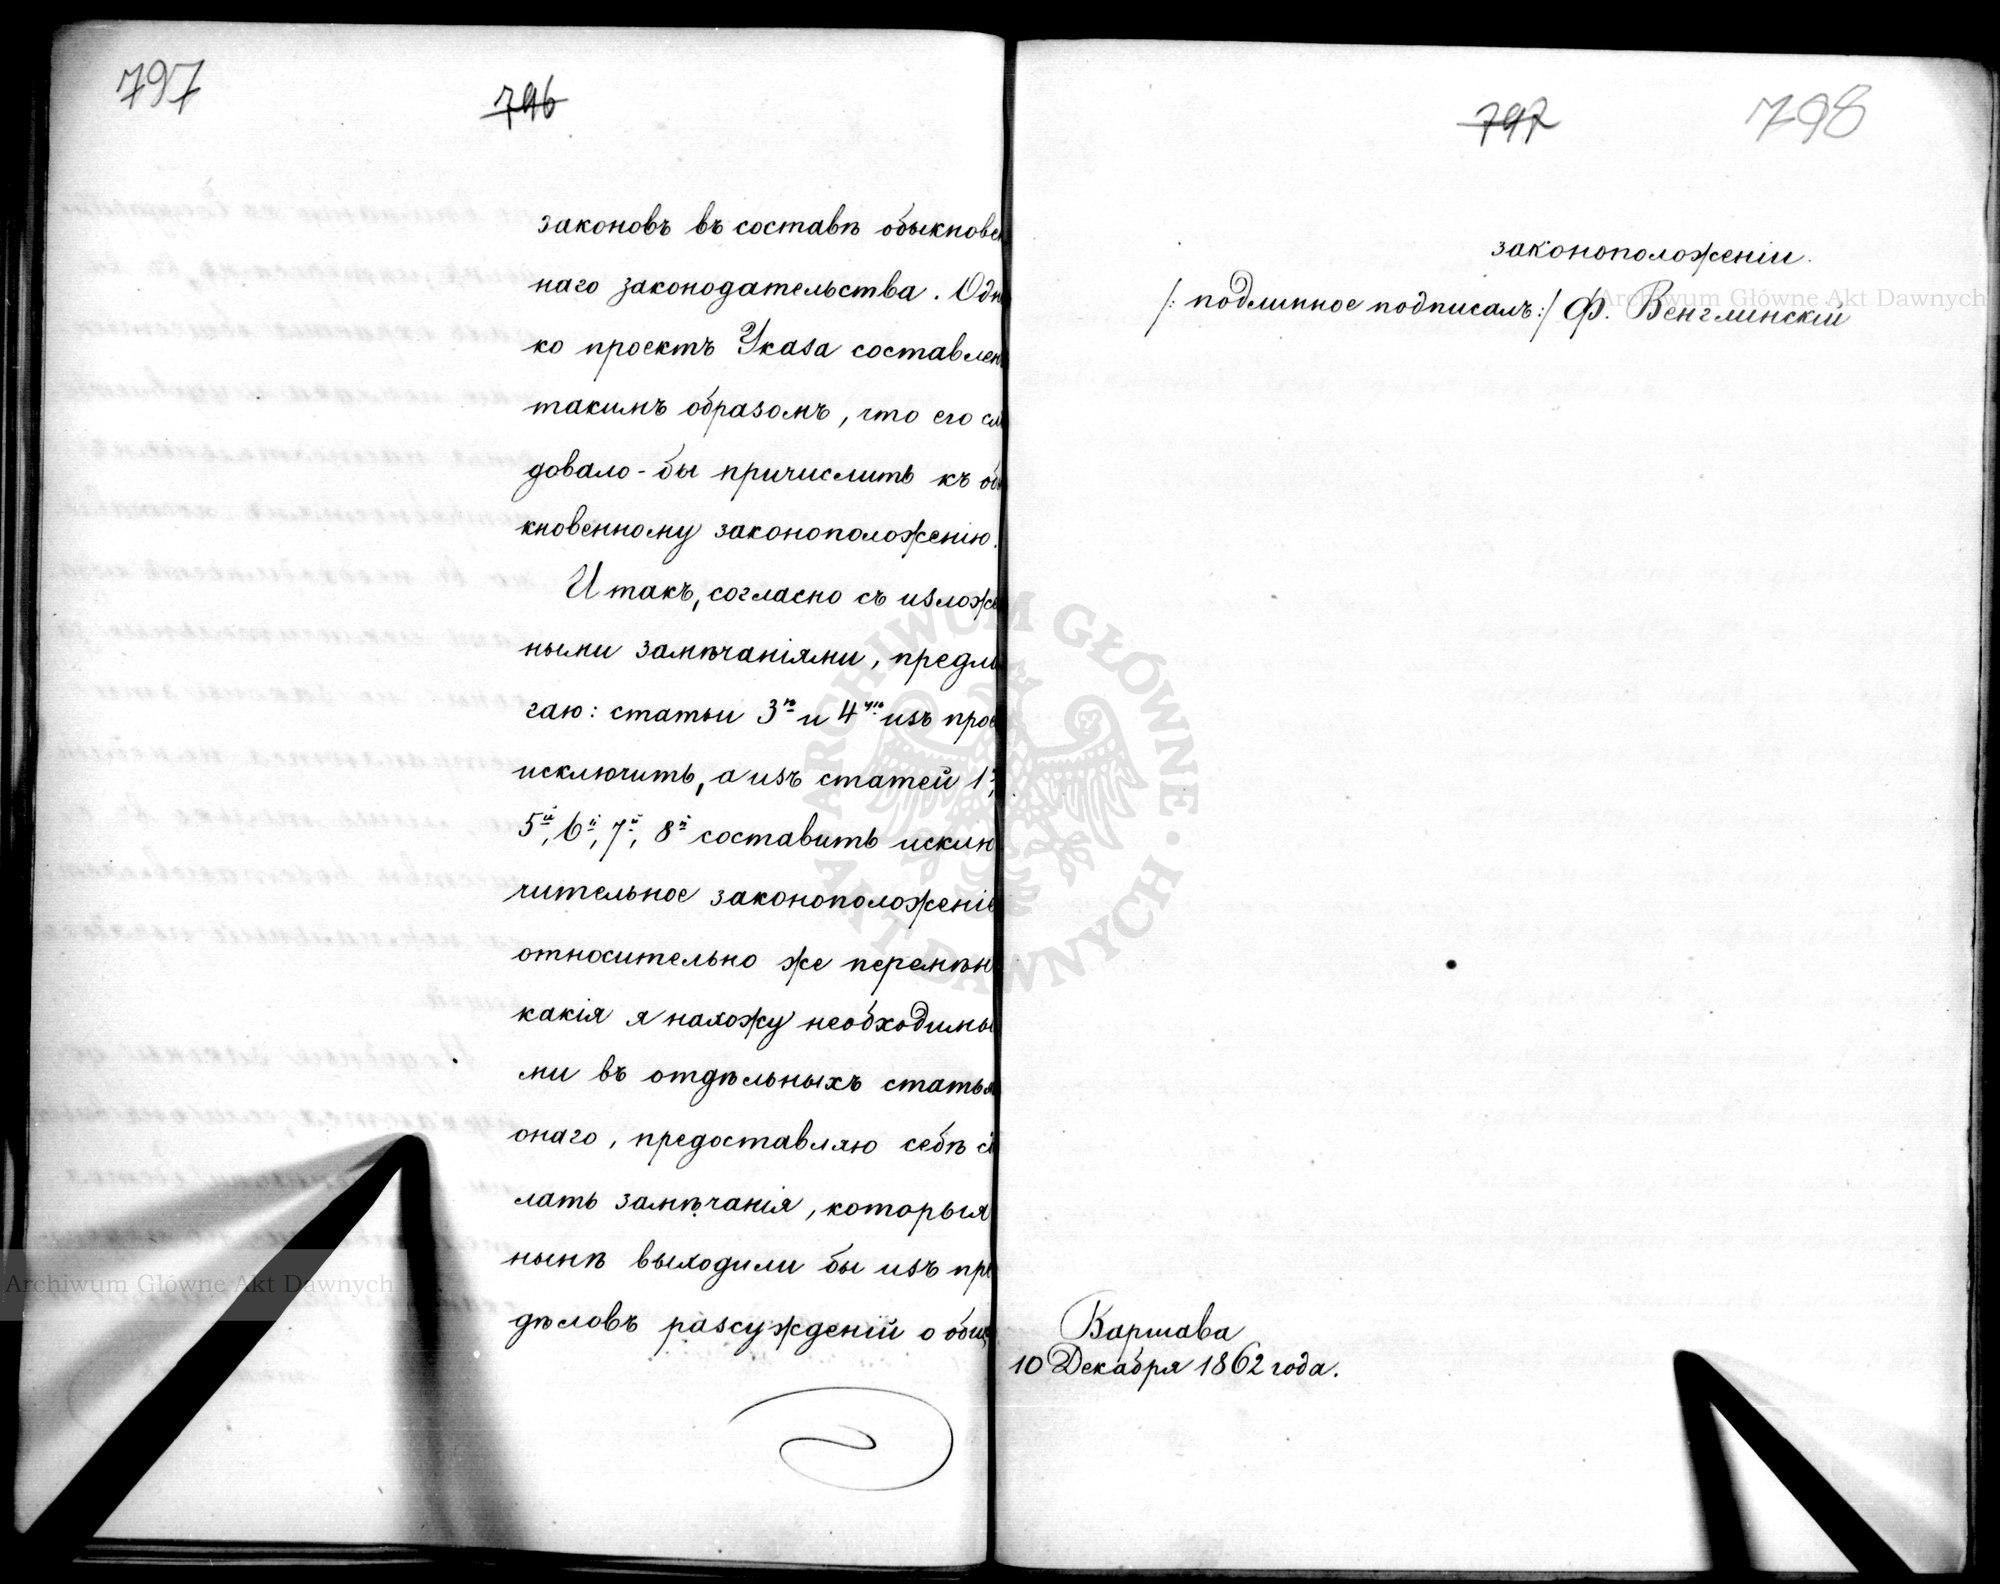 797
796
законовъ въ составѣ обыкновен
наго законодательства. Одна
ко проектъ Указа составлен
такимъ образомъ, что его сл
довало-бы причислить къ обы
кновенному законоположенію.
И такъ, согласно съ изложе
ными замѣчаніями, предла
гаю: статьи 3ю и 4ую изъ прое
исключить, а изъ статей 1й,
5й, 6й, 7й, 8й составить исклю
чительное законоположеніе
относительно же перемѣн
какія я нахожу необходимы
ми въ отдѣльныхъ статья
онаго, предоставляю себѣ сд
лать замѣчанія, которыя
нынѣ выходили бы изъ пре
дѣловъ разсужденій о общ
797
798
законоположеніи.
/: подлинное подписалъ:/ Ф. Венглинскій
Варшава
10 Декабря 1862 года.
ARCHIWUM GŁÓWNE AKT DAWNYCH
Archiwum Główne Akt Dawnych
Archiwum Główne Akt Dawnych